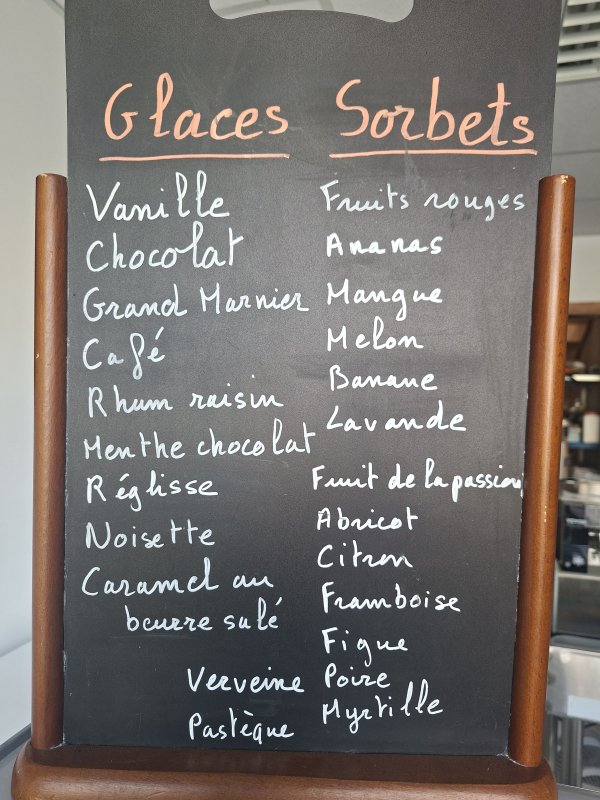 Glaces
Vanille
Chocolat
Grand Marnier
Café
Rhum raisin
Menthe chocolat
Réglisse
Noisette
Caramel au
beurre salé
Sorbets
Fruits rouges
Ananas
Mangue
Melon
Banane
Lavande
Fruit de la passion
Abricot
Citron
Framboise
Figue
Verveine Poire
Pastèque Myrtille